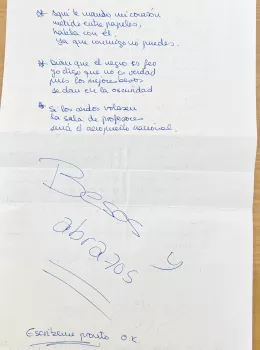 * Aqui te mando mi corazón
metido entre papeles,
habla con él,
ya que conmigo no puedes.
* Dicen que el negro es feo
yo digo que no es verdad
pues los mejores besos
se dan en la oscuridad
* Si los cerdos volasen
la sala de profesores
sería el aeropuerto nacional.
Besos y
abrazos
Escribeme pronto O.K